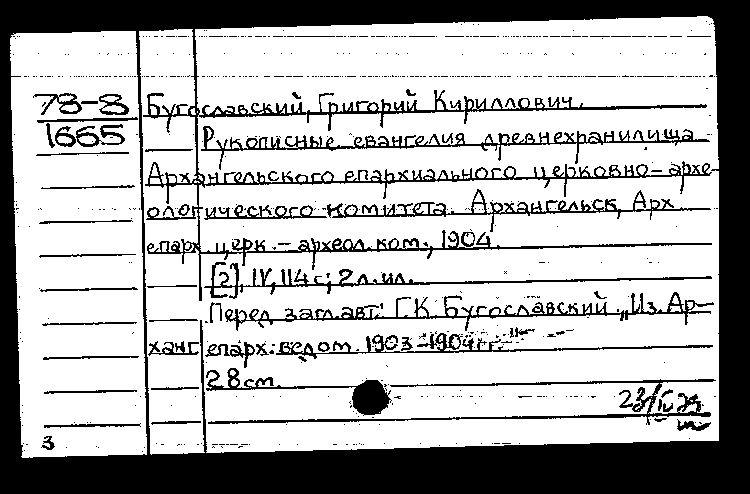 78-8
1665
Бугославский, Григорий Кириллович.
Рукописные евангелия древнехранилища
Архангельского епархиального церковно-архе-
ологического комитета. Архангельск, Арх
епарх. церк.-археол. ком., 1904.
[2], IV, 114 с; 2 л. ил.
Перед загл. авт: Г.К. Бугославский „Из Ар-
ханг епарх. ведом. 1903-1904 гг."
28 см.
3